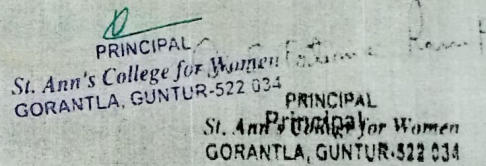 PRINCIPAL
St. Ann's College for Women
GORANTLA, GUNTUR-522 034
PRINCIPAL
Principal
St. Ann's College for Women
GORANTLA, GUNTUR-522 034